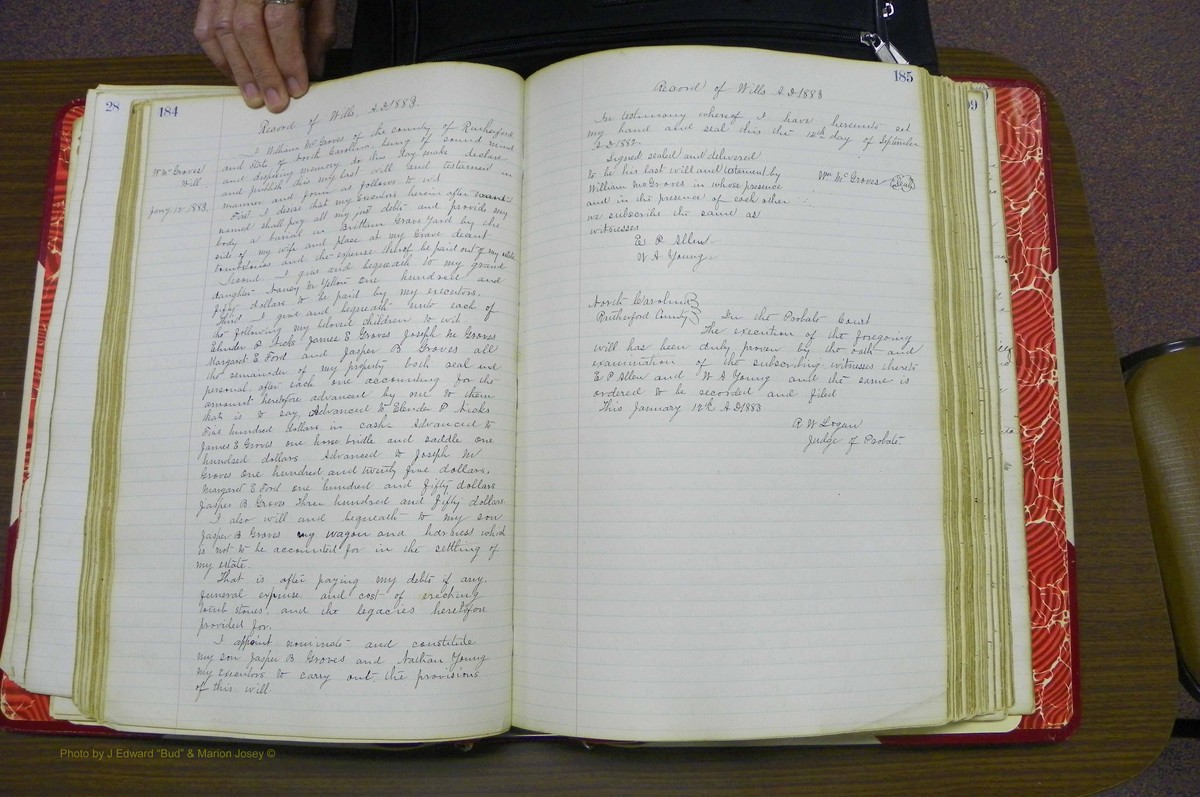 28
184
Record of Wills A.D 1883.
Wm McGroves
Will
Jany 12 1883.
I William McGroves of the county of Rutherford
and State of North Carolina being of sound mind
and disposing memory do this day make declare
and publish this my last will and testament in
manner and form as follows to wit
First I desire that my Executors herein after
named shall pay all my just debts and provide my
body a burial in Brittain Grave Yard by the
side of my wife and place at my Grave decent
Tombstones and the expense thereof be paid out of my estate
Second I give and bequeath to my grand
daughter Nancy McYelton One hundred and
fifty dollars to be paid by my executors.
Third I give and bequeath unto each of
the following my beloved children to wit
Elender P. Hicks James E Groves Joseph M Groves
Margaret E. Ford and Jasper B Groves all
the remainder of my property both real and
personal after each one accounting for the
amount heretofore advanced by me to them
that is to say, Advanced to Elender P. Hicks
Five hundred dollars in cash Advanced to
James E Groves one horse bridle and saddle one
hundred dollars Advanced to Joseph M
Groves One hundred and twenty five dollars,
Margaret E Ford one hundred and fifty dollars
Jasper B Groves Three hundred and fifty dollars
I also will and bequeath to my son
Jasper B Groves my wagon and harness which
is not to be accounted for in the settling of
my estate.
That is after paying my debts if any,
funeral expense and cost of erecting
tomb stones and the legacies heretofore
provided for.
I appoint nominate and constitute
my son Jasper B Groves and Nathan Young
my executors to carry out the provisions
of this will
185
Record of Wills A D 1883
In testimony whereof I have hereunto set
my hand and seal this the 12th day of September
A.D 1882.
Signed sealed and delivered
to be his last will and testament by
William McGroves in whose presence
and in the presence of each other
we subscribe the same as
witnesses
Wm McGroves Seal
E P Allen
W A Young
North Carolina
Rutherford County In the Probate Court
The execution of the foregoing
will has been duly proven by the oath and
examination of the subscribing witnesses thereto
E P Allen and W A Young and the same is
ordered to be recorded and filed
This January 12th A.D 1883
R W Logan
Judge of Probate
99
Photo by J Edward "Bud" & Marion Josey ©